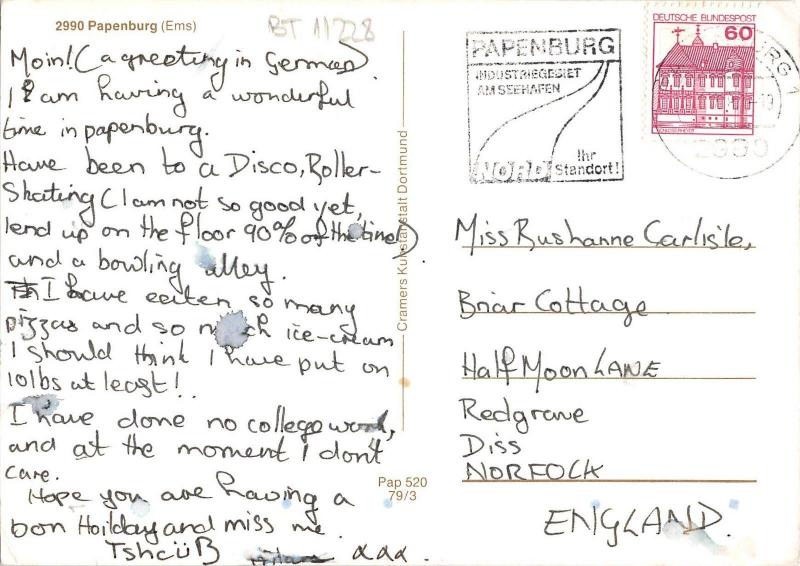 2990 Papenburg (Ems)
BT 11228
Moin! (a greeting in German)
I am having a wonderful
time in papenburg.
Have been to a Disco, Roller-
Skating (I am not so good yet,
I end up on the floor 90% of the time)
and a bowling alley.
I have eaten so many
pizzas and so much ice-cream
I should think I have put on
10lbs at least!
I have done no college work,
and at the moment I don't
care.
Hope you are having a
bon Hoilday and miss me.
TshcüB
xxx.
Cramers Kunstanstalt Dortmund
Pap 520
79/3
PAPENBURG
INDUSTRIEGEBIET
AM SEEHAFEN
NORD Ihr
Standort!
DEUTSCHE BUNDESPOST
60
SCHLOSS RHEYDT
BURG 1
2990
Miss Rushanne Carlisle,
Briar Cottage
Half Moon LANE
Redgrave
Diss
NORFOCK
ENGLAND.